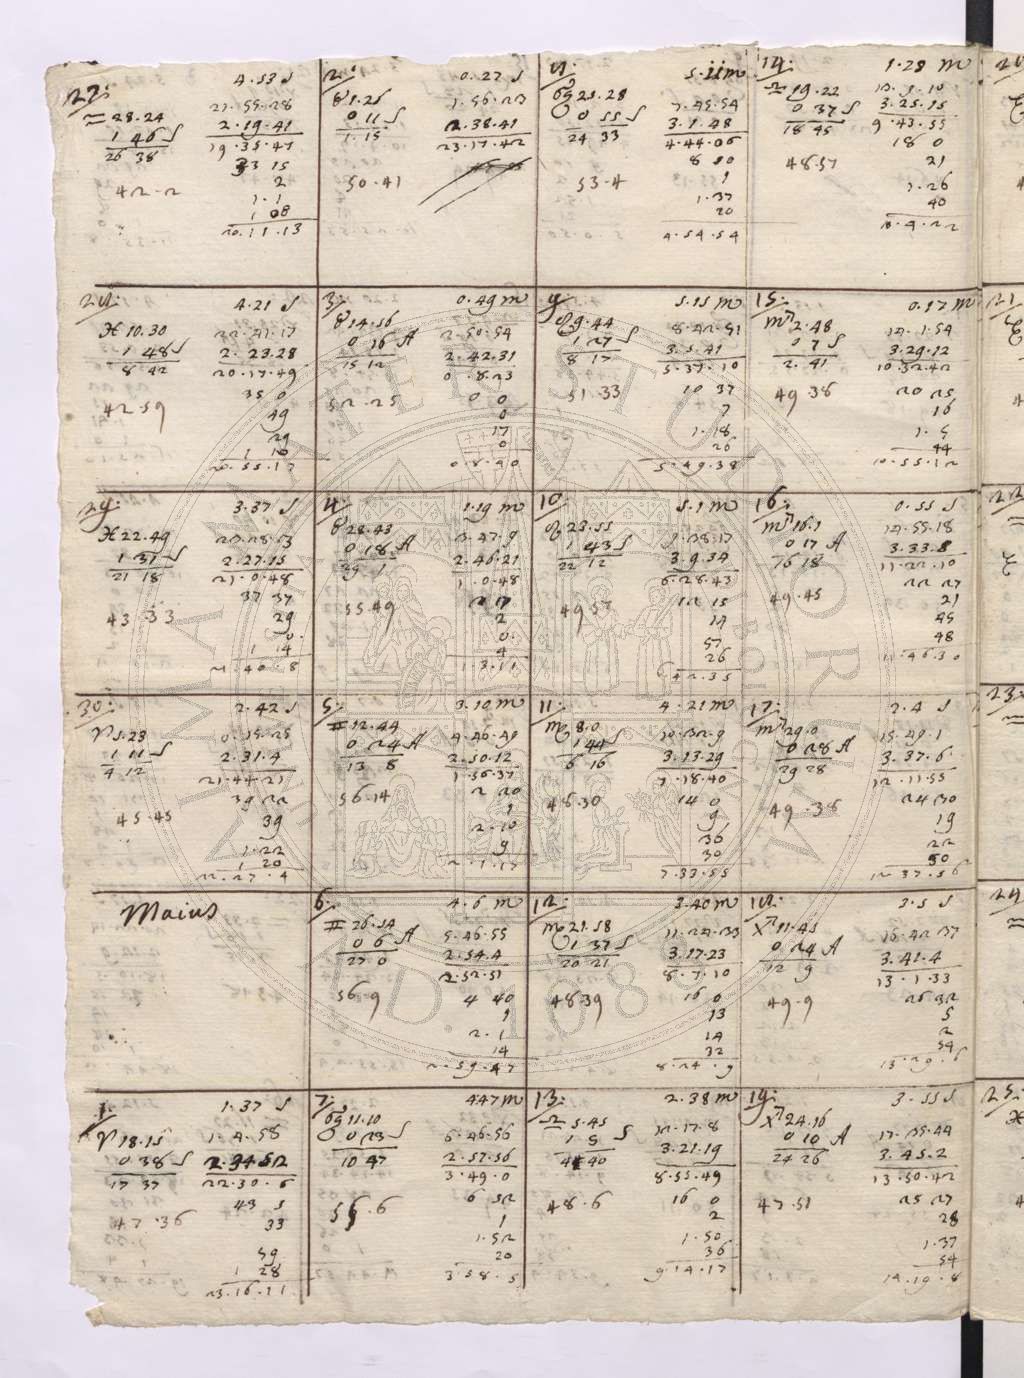 27:
4.53 S
♒ 28.24
1 46 S
26 38
42.2
21.55.28
2.19.41
19.35.47
43 15
2
1.1
1 08
20.11.13
28:
4.21 S
♓ 10.30
1 48 S
8 42
42.59
22.41.17
2.23.28
20.17.49
35 0
49
29
1 10
20.55.17
29:
3.37 S
♓ 22.49
1 31 S
21 18
43.33
2.27.15
21.0.48
37 37
29
0.
1 14
21.40.8
30:
2.42 S
♈ 5.23
1 11 S
4 12
45.45
0.15.25
2.31.4
21.44.21
39 22
39
1.22
1 20
22.27.4
Maius
1.
1.37 S
♈ 18.15
0 38 S
17 37
47.36
1.4.58
2.34 52
22.30.6
43 5
33
59
1 28
23.16.11
2:
0.27 S
♉ 1.26
0 11 S
1.15
50.41
1.56.23
2.38.41
23.17.42
3:
0.49 m
♉ 14.56
0 16 A
15 12
52.25
2.50.54
2.42.31
0.8.23
0 0
0
17
0
0.8.40
4:
1.19 m
♉ 28.43
0 18 A
29 1
55.49
3.47.9
2.46.21
1.0.48
2 17
2
0.
4
1.3.11
5:
3.10 m
♊ 12.44
0 24 A
13 8
56.14
4.46.49
2.50.12
1.56.37
2 20
1
2.10
9
2.1.17
6:
4.6 m
♊ 26.54
0 6 A
27 0
56.9
5.46.55
2.54.4
2.52.51
4 40
1
2.1
14
2.59.47
7:
4 47 m
♋ 11.10
0 23 S
10 47
56.6
6.46.56
2.57.56
3.49.0
6 52
1
1.52
20
3.58.5
8:
5.11 m
♋ 25.28
0 55 S
24 33
53.4
7.45.54
3.1.48
4.44.06
8 50
1
1.37
20
4.54.54
9:
5.15 m
♌ 9.44
1 27 S
8 17
51.33
8.42.51
3.5.41
5.37.10
10 37
7
1.18
26
5.49.38
10
5.1 m
♌ 23.55
1 43 S
22 12
49.57
9.38.17
3.9.34
6.28.43
12 15
14
57
26
6 42.35
11:
4.21 m
♍ 8.0
1 44 S
6 16
48.30
10.32.9
3.13.29
7.18.40
14 0
9
36
30
7.33.55
12:
3.40 m
♍ 21.58
1 37 S
20 21
48 39
11.24.33
3.17.23
8.7.10
16 0
13
14
32
8.24.9
13:
2.38 m
♎ 5.45
1 5 S
4 40
48.6
12.17.8
3.21.19
8.55.49
16 0
2
1.50
36
9 14.17
14:
1.28 m
♎ 19.22
0 37 S
18 45
48.57
13.9.10
3.25.15
9.43.55
18 0
21
1.26
40
10.4.22
15:
0.17 m
♏ 2.48
0 7 S
2.41
49.38
14.1.54
3.29.12
10.32.42
20 25
16
1.5
44
10.55.12
16:
0.55 S
♏ 16.1
0 17 A
16 18
49.45
14.55.18
3.33.8
11.22.10
22 27
21
45
48
11.46.30
17:
2.4 S
♏ 29.0
0 28 A
29 28
49.38
15.49.1
3.37.6
12.11.55
24 30
19
22
50
12 37.56
18:
3.5 S
♐ 11.45
0 24 A
12 9
49.9
16.42 37
3.41.4
13.1.33
26 32
5
2
54
13.29.6
19:
3.55 S
♐ 24.16
0 10 A
24 26
47.51
17.35.44
3.45.2
13.50.42
25 27
28
1.37
54
14.19.8